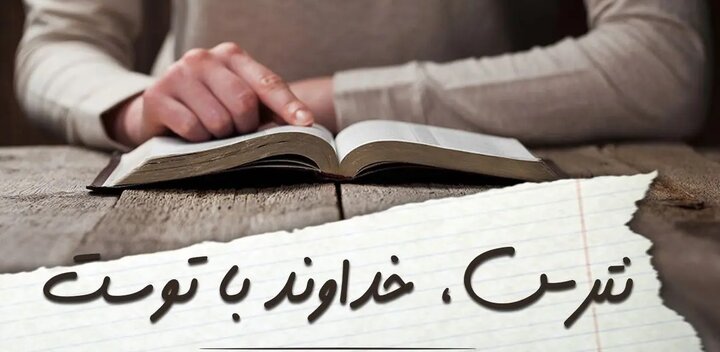 نترس، خداوند با توست